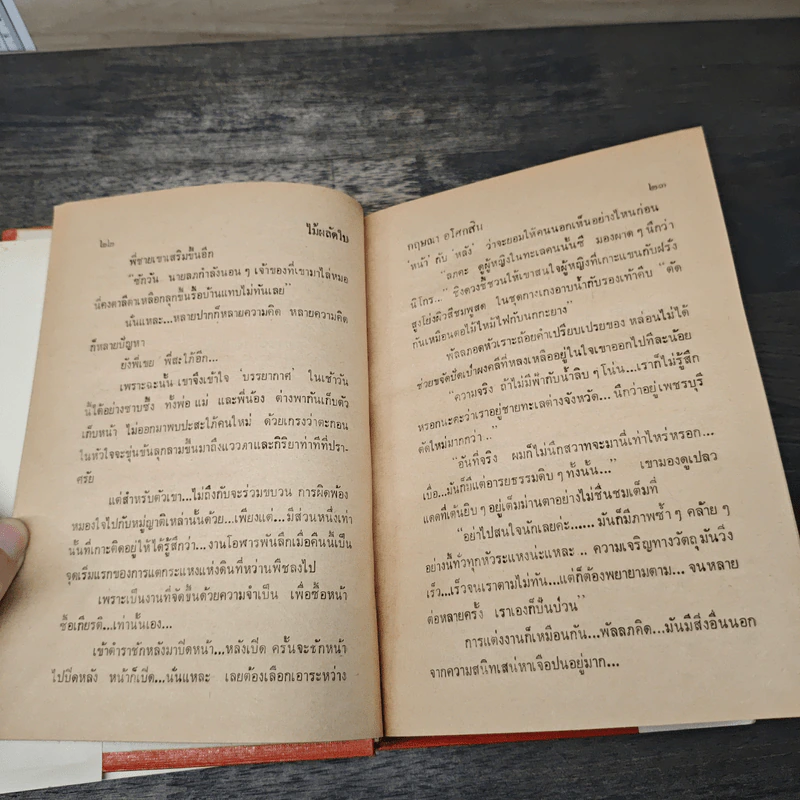 ๒๒
ไม้ผลัดใบ
พี่ชายเขาเสริมขึ้นอีก
"ซักวัน นายลภกำลังนอนๆ เจ้าของที่เขามาไล่หมอ
นี่คงตาลีตาเหลือกลุกขึ้นรื้อบ้านแทบไม่ทันเลย"
นั่นแหละ...หลายปากก็หลายความคิด หลายความคิด
ก็หลายปัญหา
ยังพี่เขย พี่สะใภ้อีก...
เพราะฉะนั้น เขาจึงเข้าใจ 'บรรยากาศ' ในเช้าวัน
นี้ได้อย่างซาบซึ้ง ทั้งพ่อ แม่ และพี่น้อง ต่างพากันเก็บตัว
เก็บหน้า ไม่ออกมาพบปะสะใภ้คนใหม่ ด้วยเกรงว่าตะกอน
ในหัวใจจะขุ่นขึ้นลุกลามขึ้นมาถึงแววตาและกิริยาท่าทีที่ปรา-
ศรัย
แต่สำหรับตัวเขา...ไม่ถึงกับจะร่วมขบวน การผิดพ้อง
หมองใจไปกับหมู่ญาติเหล่านั้นด้วย...เพียงแต่...มีส่วนหนึ่งเท่า
นั้นที่เกาะติดอยู่ให้ได้รู้สึกว่า...งานโอฬารพันลึกเมื่อคืนนี้เป็น
จุดเริ่มแรกของการแตกระแหงแห่งดินที่หว่านพืชลงไป
เพราะเป็นงานที่จัดขึ้นด้วยความจำเป็น เพื่อซื้อหน้า
ซื้อเกียรติ...เท่านั้นเอง...
เข้าตำราชักหลังมาปิดหน้า...หลังเปิด ครั้นจะชักหน้า
ไปปิดหลัง หน้าก็เปิด...นั่นแหละ เลยต้องเลือกเอาระหว่าง
กฤษณา อโศกสิน
๒๓
'หน้า' กับ 'หลัง' ว่าจะยอมให้คนนอกเห็นอย่างไหนก่อน
"ลภคะ ดูผู้หญิงในทะเลคนนั้นซี มองผาดๆ นึกว่า
นิโกร..." ซึงดวงชี้ชวนให้เขาสนใจผู้หญิงที่เกาะแขนกับฝรั่ง
สูงโย่งผิวสีชมพูสด ในชุดกางเกงอาบน้ำกับรองเท้าคีบ "ตัด
กันเหมือนตอไม้ไหม้ไฟกับนกกะยาง"
พัลลภอดหัวเราะถ้อยคำเปรียบเปรยของ หล่อนไม่ได้
ช่วยขจัดปัดเป่าผงคลีที่หลงเหลืออยู่ในใจเขาออกไปทีละน้อย
"ความจริง ถ้าไม่มีฟ้ากับน้ำลิบๆ โน่น...เราก็ไม่รู้สึก
หรอกนะคะว่าเราอยู่ชายทะเลต่างจังหวัด...นึกว่าอยู่เพชรบุรี
ตัดใหม่มากกว่า.."
"อันที่จริง ผมก็ไม่นึกสวาทจะมานี่เท่าไหร่หรอก...
เบื่อ...มันก็มีแต่อารยธรรมดิบๆ ทั้งนั้น..." เขามองดูเปลว
แดดที่เต้นยิบๆ อยู่เต็มม่านตาอย่างไม่ชื่นชมเต็มที่
"อย่าไปสนใจนักเลยค่ะ...... มันก็มีภาพซ้ำๆ คล้ายๆ
อย่างนี้ทั่วทุกหัวระแหงน่ะแหละ.. ความเจริญทางวัตถุมันวิ่ง
เร็ว...เร็วจนเราตามไม่ทัน...แต่ก็ต้องพยายามตาม... จนหลาย
ต่อหลายครั้ง เราเองก็ปั่นป่วน"
การแต่งงานก็เหมือนกัน...พัลลภคิด...มันมีสิ่งอื่นนอก
จากความสนิทเสน่หาเจือปนอยู่มาก...